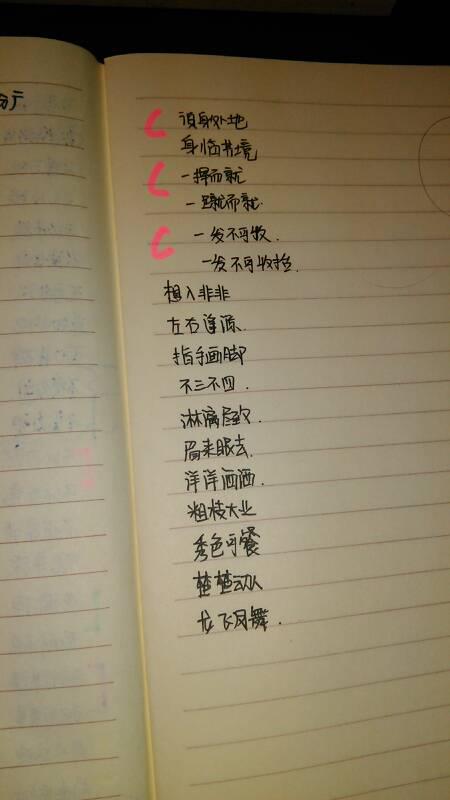 设身处地
身临其境
一挥而就
一蹴而就.
一发不可收.
一发不可收拾.
想入非非
左右逢源.
指手画脚
不三不四.
淋漓尽致.
眉来眼去.
洋洋洒洒.
粗枝大业
秀色可餐
楚楚动人
龙飞凤舞.